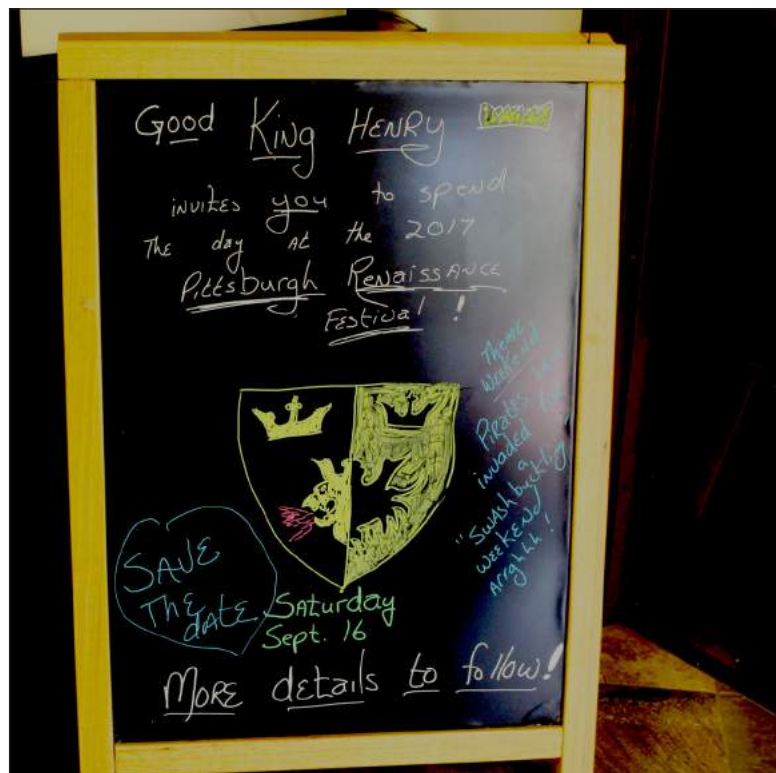 Good King HENRY
invites you to spend
The day at the 2017
Pittsburgh Renaissance
Festival!
Theme
Weekend
Pirates
invaded
a
"Swashbuckling
Weekend
Arrghhh!
SAVE
THE
DATE
Saturday
Sept. 16
More details to follow!